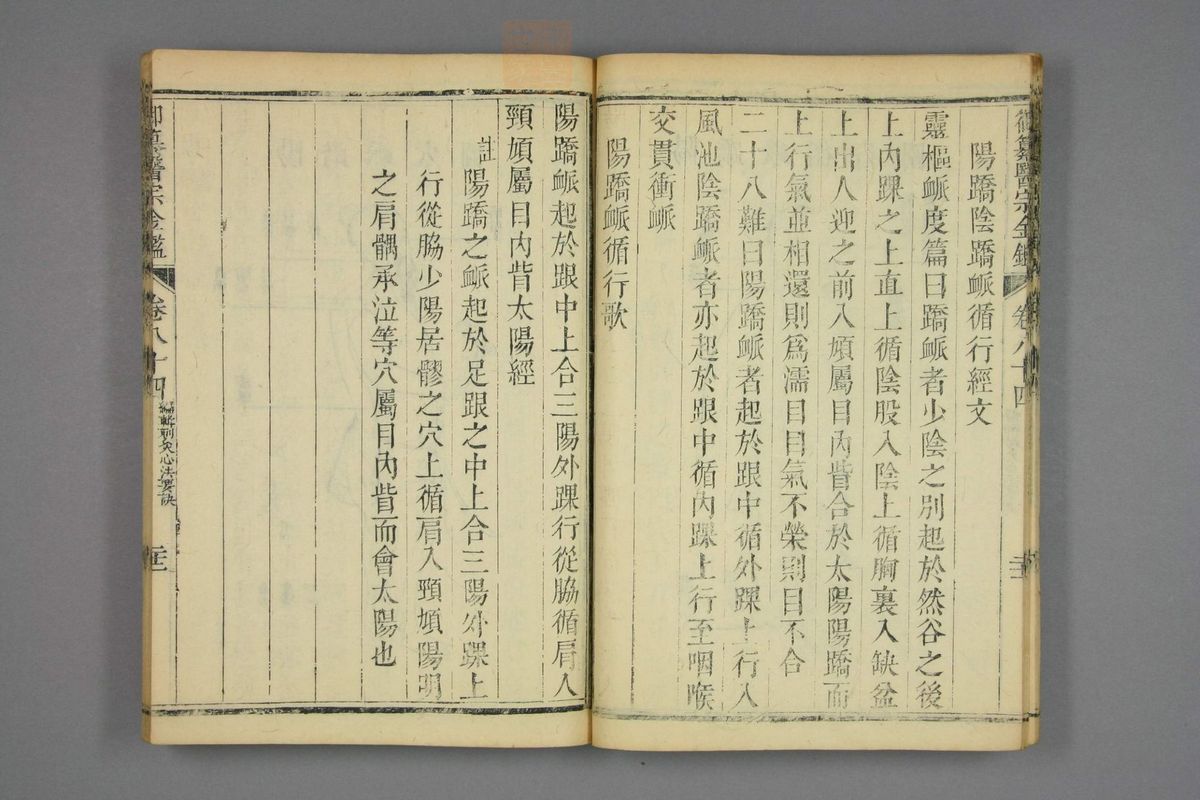 御纂醫宗金鑑 卷八十四
陽蹻陰蹻脈循行經文
靈樞脈度篇曰蹻脈者少陰之別起於然谷之後
上內踝之上直上循陰股入陰上循胸裏入缺盆
上出人迎之前入頄屬目內眥合於太陽陽蹻而
上行氣並相還則爲濡目目氣不榮則目不合
二十八難曰陽蹻脈者起於跟中循外踝上行入
風池陰蹻脈者亦起於跟中循內踝上行至咽喉
交貫衝脈
陽蹻脈循行歌
陽蹻脈起於跟中上合三陽外踝行從脇循肩入
頸頄屬目內眥太陽經
註
陽蹻之脈起於足跟之中上合三陽外踝上
行從脇少陽居髎之穴上循肩入頸頄陽明
之肩髃承泣等穴屬目內眥而會太陽也
御纂醫宗金鑑 卷八十四 編輯刺灸心法要訣